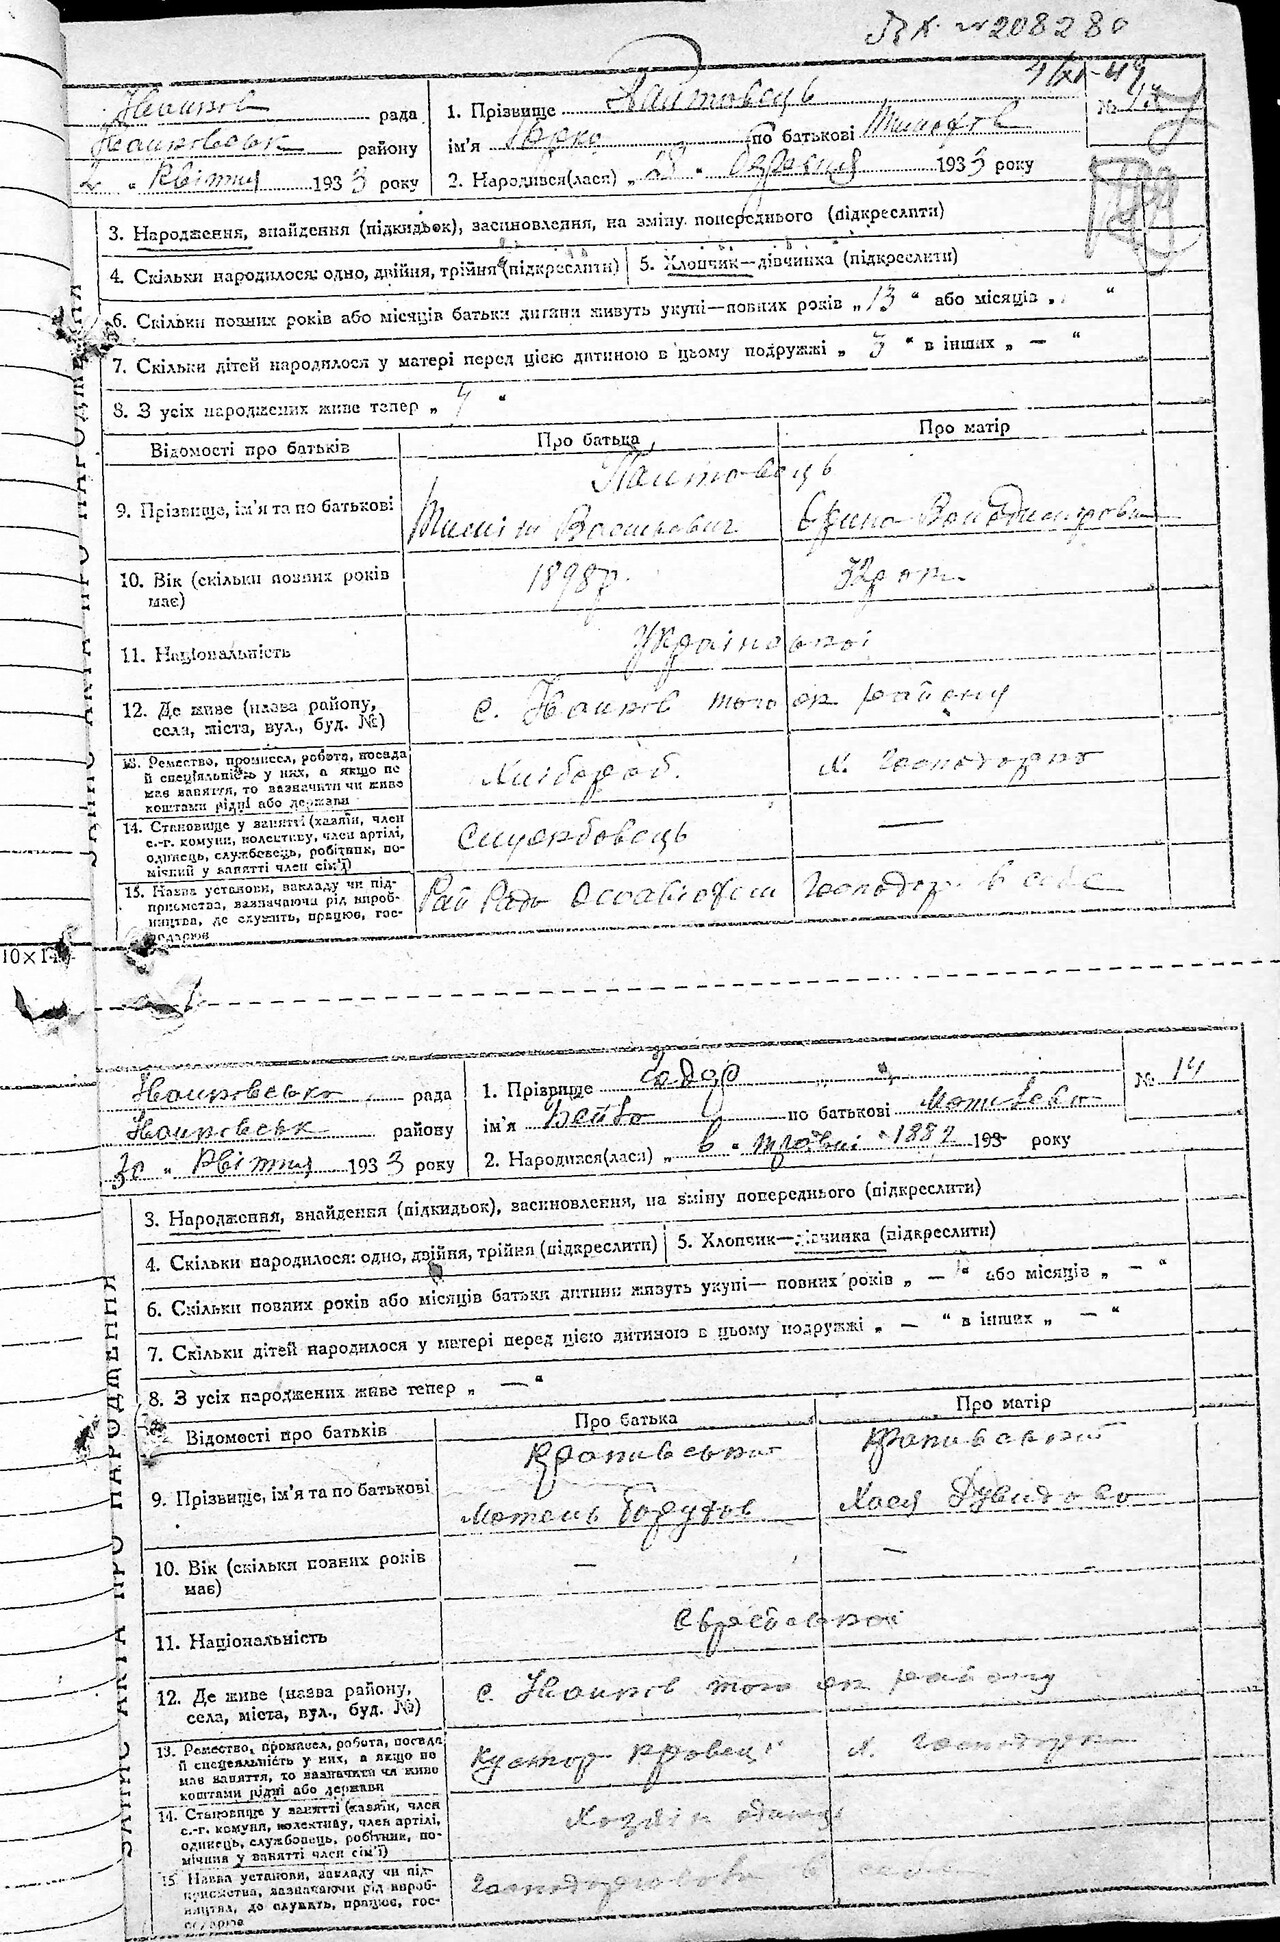 № 208280
4/XI-49
Іванков рада
1. Прізвище Пантовець
№ 13
Іванковськ району
ім'я Юрко по батькові Тимофіїв
2 " Квітня 1933 року
2. Народився(лася) „ 23 " березня 1933 року
3. Народження, знайдення (підкидьок), засиновлення, на зміну попереднього (підкреслити)
4. Скільки народилося: одно, двійня, трійня (підкреслити)
5. Хлопчик—дівчинка (підкреслити)
6. Скільки повних років або місяців батьки дитини живуть укупі—повних років „ 13 " або місяців „ "
7. Скільки дітей народилося у матері перед цією дитиною в цьому подружжі „ 3 " в інших „ — "
8. З усіх народжених живе тепер „ 4 "
Відомості про батьків
Про батька
Про матір
Пантовець
9. Прізвище, ім'я та по батькові
Василевич
Володимирівна
10. Вік (скільки повних років має)
1898р.
11. Національність
Української
12. Де живе (назва району, села, міста, вул., буд. №)
с. Іванков того ж району
13. Ремество, промисел, робота, посада й спеціяльність у них, а якщо не має заняття, то зазначити чи живе коштами рідні або держави
Хлібороб.
х. господарка
14. Становище у занятті (хазяїн, член с.-г. комуни, колективу, член артілі, одинець, службовець, робітник, помічний у занятті член сім'ї)
Служебовець
—
15. Назва установи, закладу чи підприємства, зазначаючи рід виробництва, де служить, працює, господарює
Рай Рада
господар в себе
10×14
ЗАПИС АКТА ПРО НАРОДЖЕННЯ
Іванковська рада
1. Прізвище
№ 14
Іванковськ району
ім'я Бейла по батькові Мотелева
30 " Квітня 1933 року
2. Народився(лася) „ 6 " травні 1887 193 року
3. Народження, знайдення (підкидьок), засиновлення, на зміну попереднього (підкреслити)
4. Скільки народилося: одно, двійня, трійня (підкреслити)
5. Хлопчик—дівчинка (підкреслити)
6. Скільки повних років або місяців батьки дитини живуть укупі— повних років „ — " або місяців „ — "
7. Скільки дітей народилося у матері перед цією дитиною в цьому подружжі „ — " в інших „ — "
8. З усіх народжених живе тепер „ — "
Відомості про батьків
Про батька
Про матір
Крапивський
Крапивський
9. Прізвище, ім'я та по батькові
Мотель Борухов
Хася Дувидова
10. Вік (скільки повних років має)
—
—
11. Національність
Єврейської
12. Де живе (назва району, села, міста, вул., буд. №)
с. Іванков того ж району
13. Ремество, промисел, робота, посада й спеціяльність у них, а якщо не має заняття, то зазначити чи живе коштами рідні або держави
Кустар кравець
х. господарка
14. Становище у занятті (хазяїн, член с.-г. комуни, колективу, член артілі, одинець, службовець, робітник, помічний у занятті член сім'ї)
Хозяїн одинець
15. Назва установи, закладу чи підприємства, зазначаючи рід виробництва, де служить, працює, господарює
ЗАПИС АКТА ПРО НАРОДЖЕННЯ